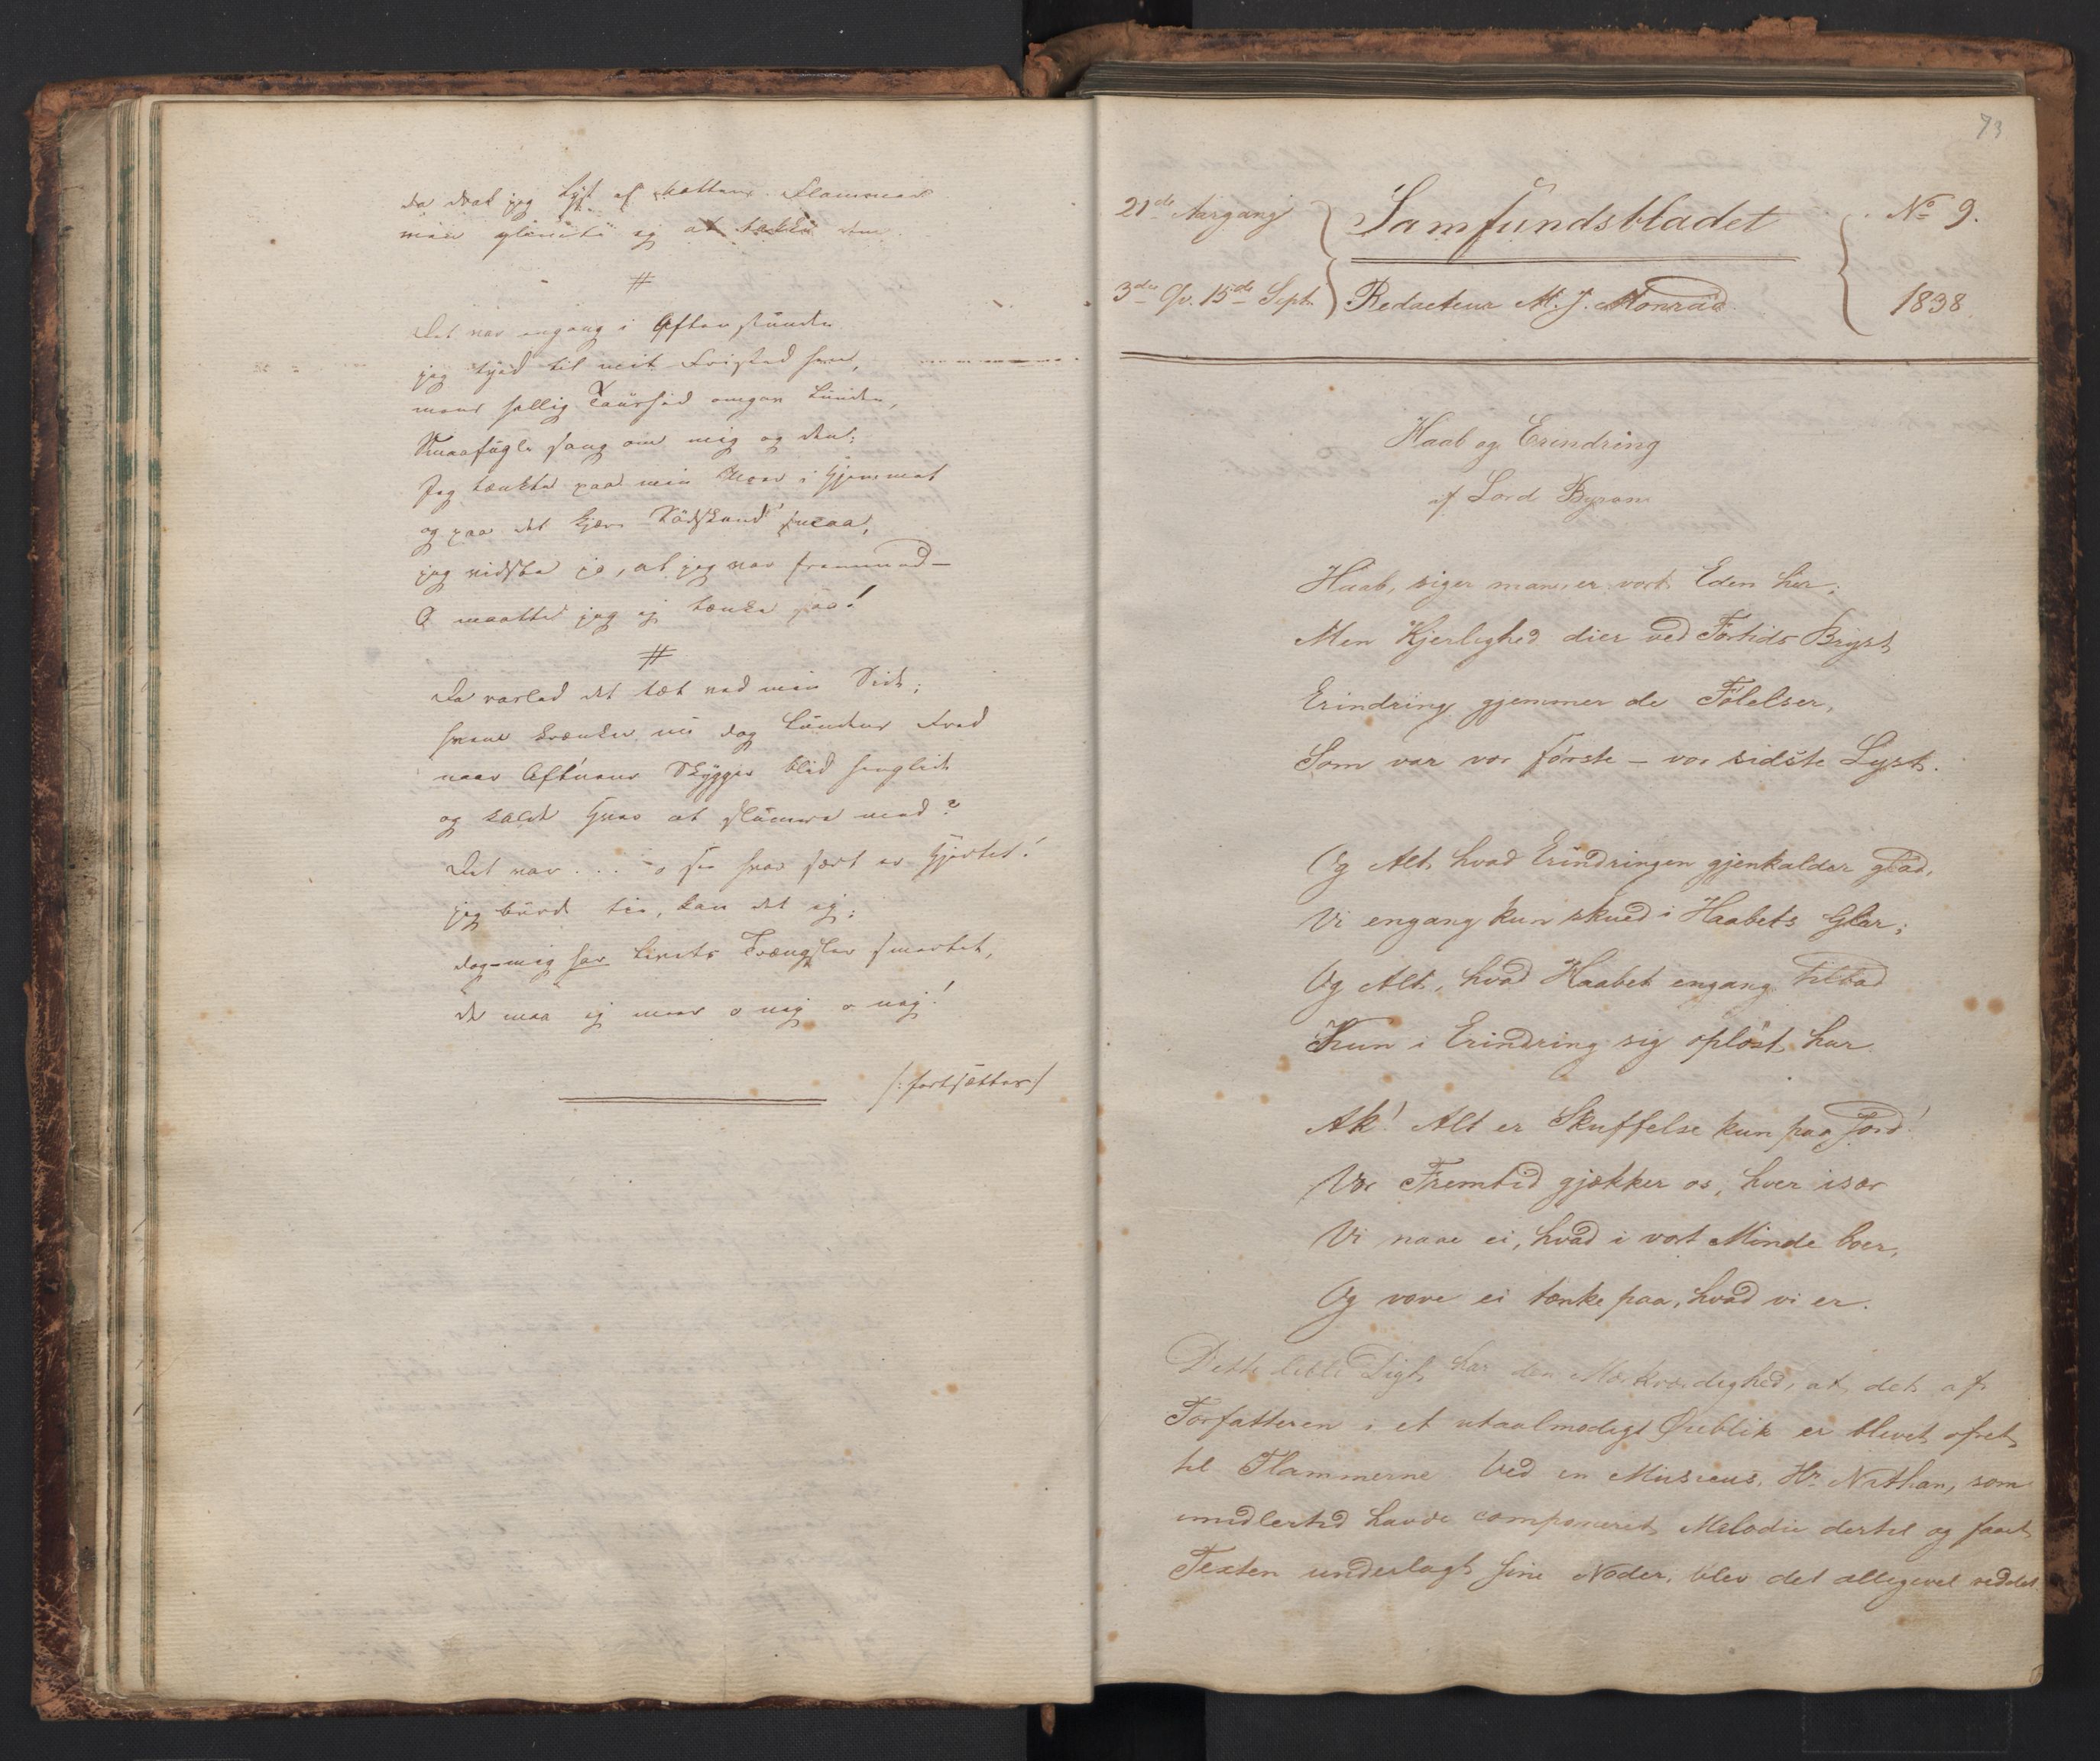 da drak jeg Lyst af Nattens Flammer
men glemte ej at takke dem.
#
Det var engang i Aftenstunden
jeg tyed til mit Fristed hen,
mens hellig Taushed omgav Lunden,
Smaafugle sang om mig og den;
Jeg tænkte paa min Moer i Hjemmet
og paa det kjære Södskend' smaa,
jeg vidste jo, at jeg var fremmed —
O maatte jeg ej tænke saa!
#
Da raslede det tæt ved min Side;
hvem krænker nu dog Lundens Fred
naar Aftnens Skygger blid hengled
og kaldte hver at slumre ned?
Det var . . . o see hvor sært er Hjertet!
jeg burde tie, kan det ej;
dog mig har Livets Trængsler smertet,
de maa ej meer o nej o nej!
/: fortsættes :/
73
21de Aargang Samfundsbladet No 9.
3die Qv. 15de Sept. Redacteur M. J. Monrad. 1838.
Haab og Erindring
af Lord Byron
Haab, siger man, er vort Eden her;
Men Kjerlighed dier ved Fortids Bryst
Erindring gjemmer de Fölelser,
Som var vor förste – vor sidste Lyst.
Og Alt, hvad Erindringen gjenkalder glad,
Vi engang kun skued i Haabets Glar;
Og Alt, hvad Haabet engang tilbad
Kun i Erindring sig oplöst har
Ak! Alt er Skuffelse kun paa Jord!
Vor Fremtid gjækker os, hver især
Vi naae ei, hvad i vort Minde boer,
Og vove ei tænke paa, hvad vi er.
Dette lille Digt har den Mærkværdighed, at det af
Forfatteren i et utaalmodigt Öieblik er blevet ofret
til Flammerne Ved en Musicus, Hr. Nathan, som
imidlertid havde componeret Melodie dertil og faaet
Texten underlagt sine Noder, blev det alligevel reddet